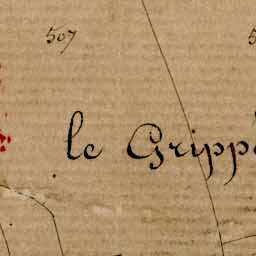 507
le Grippé